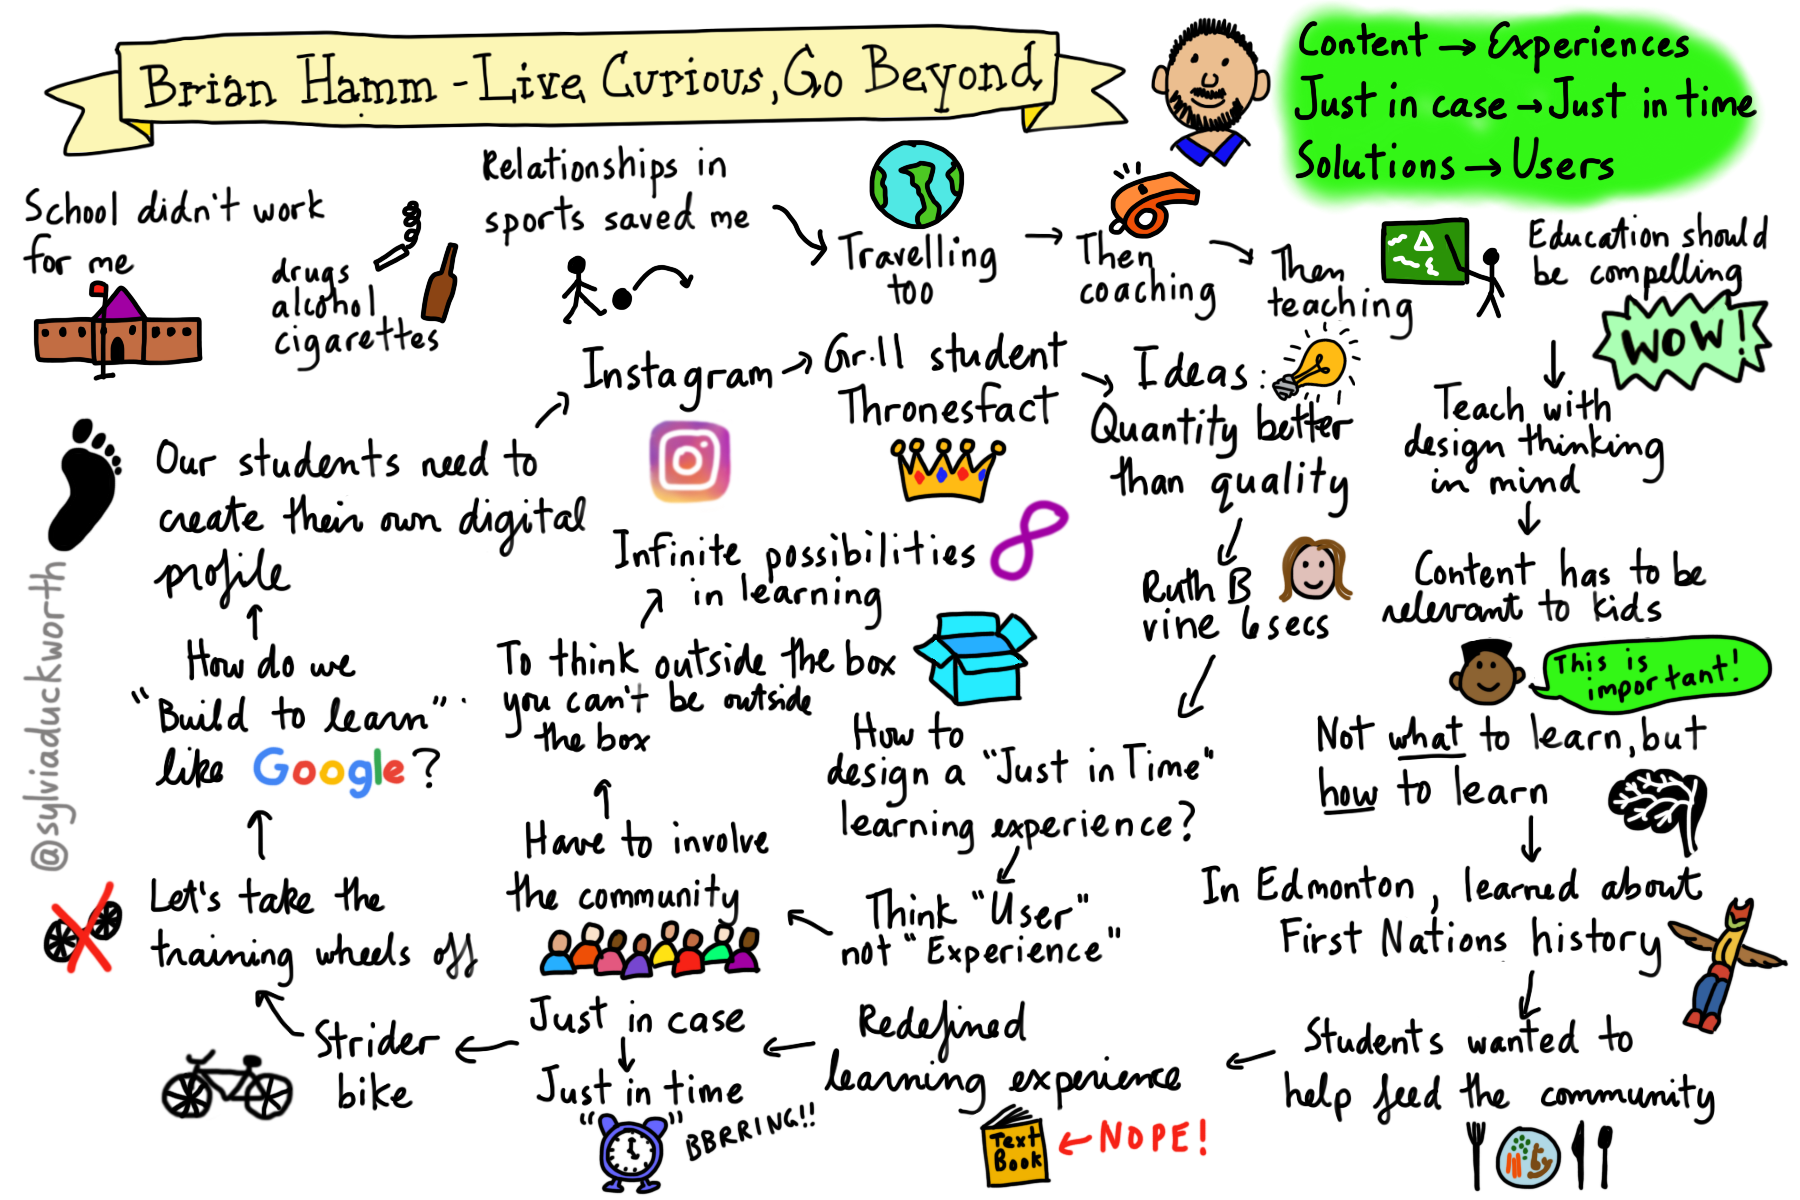 Brian Hamm - Live Curious, Go Beyond
Content → Experiences
Just in case → Just in time
Solutions → Users
School didn't work
for me
drugs
alcohol
cigarettes
Relationships in
sports saved me
Travelling
too
Then
coaching
Then
teaching
Education should
be compelling
WOW!
Teach with
design thinking
in mind
Content has to be
relevant to kids
This is
important!
Not what to learn, but
how to learn
In Edmonton, learned about
First Nations history
Students wanted to
help feed the community
Redefined
learning experience
Text
Book
NOPE!
Just in case
Just in time
"BBRRING!!"
Strider
bike
Let's take the
training wheels off
How do we
"Build to learn"
like Google?
Our students need to
create their own digital
profile
Instagram
Gr.11 student
Thronesfact
Ideas:
Quantity better
than quality
Ruth B
vine 6 secs
How to
design a "Just in Time"
learning experience?
Think "User"
not "Experience"
Have to involve
the community
To think outside the box
you can't be outside
the box
Infinite possibilities
in learning
@sylviaduckworth